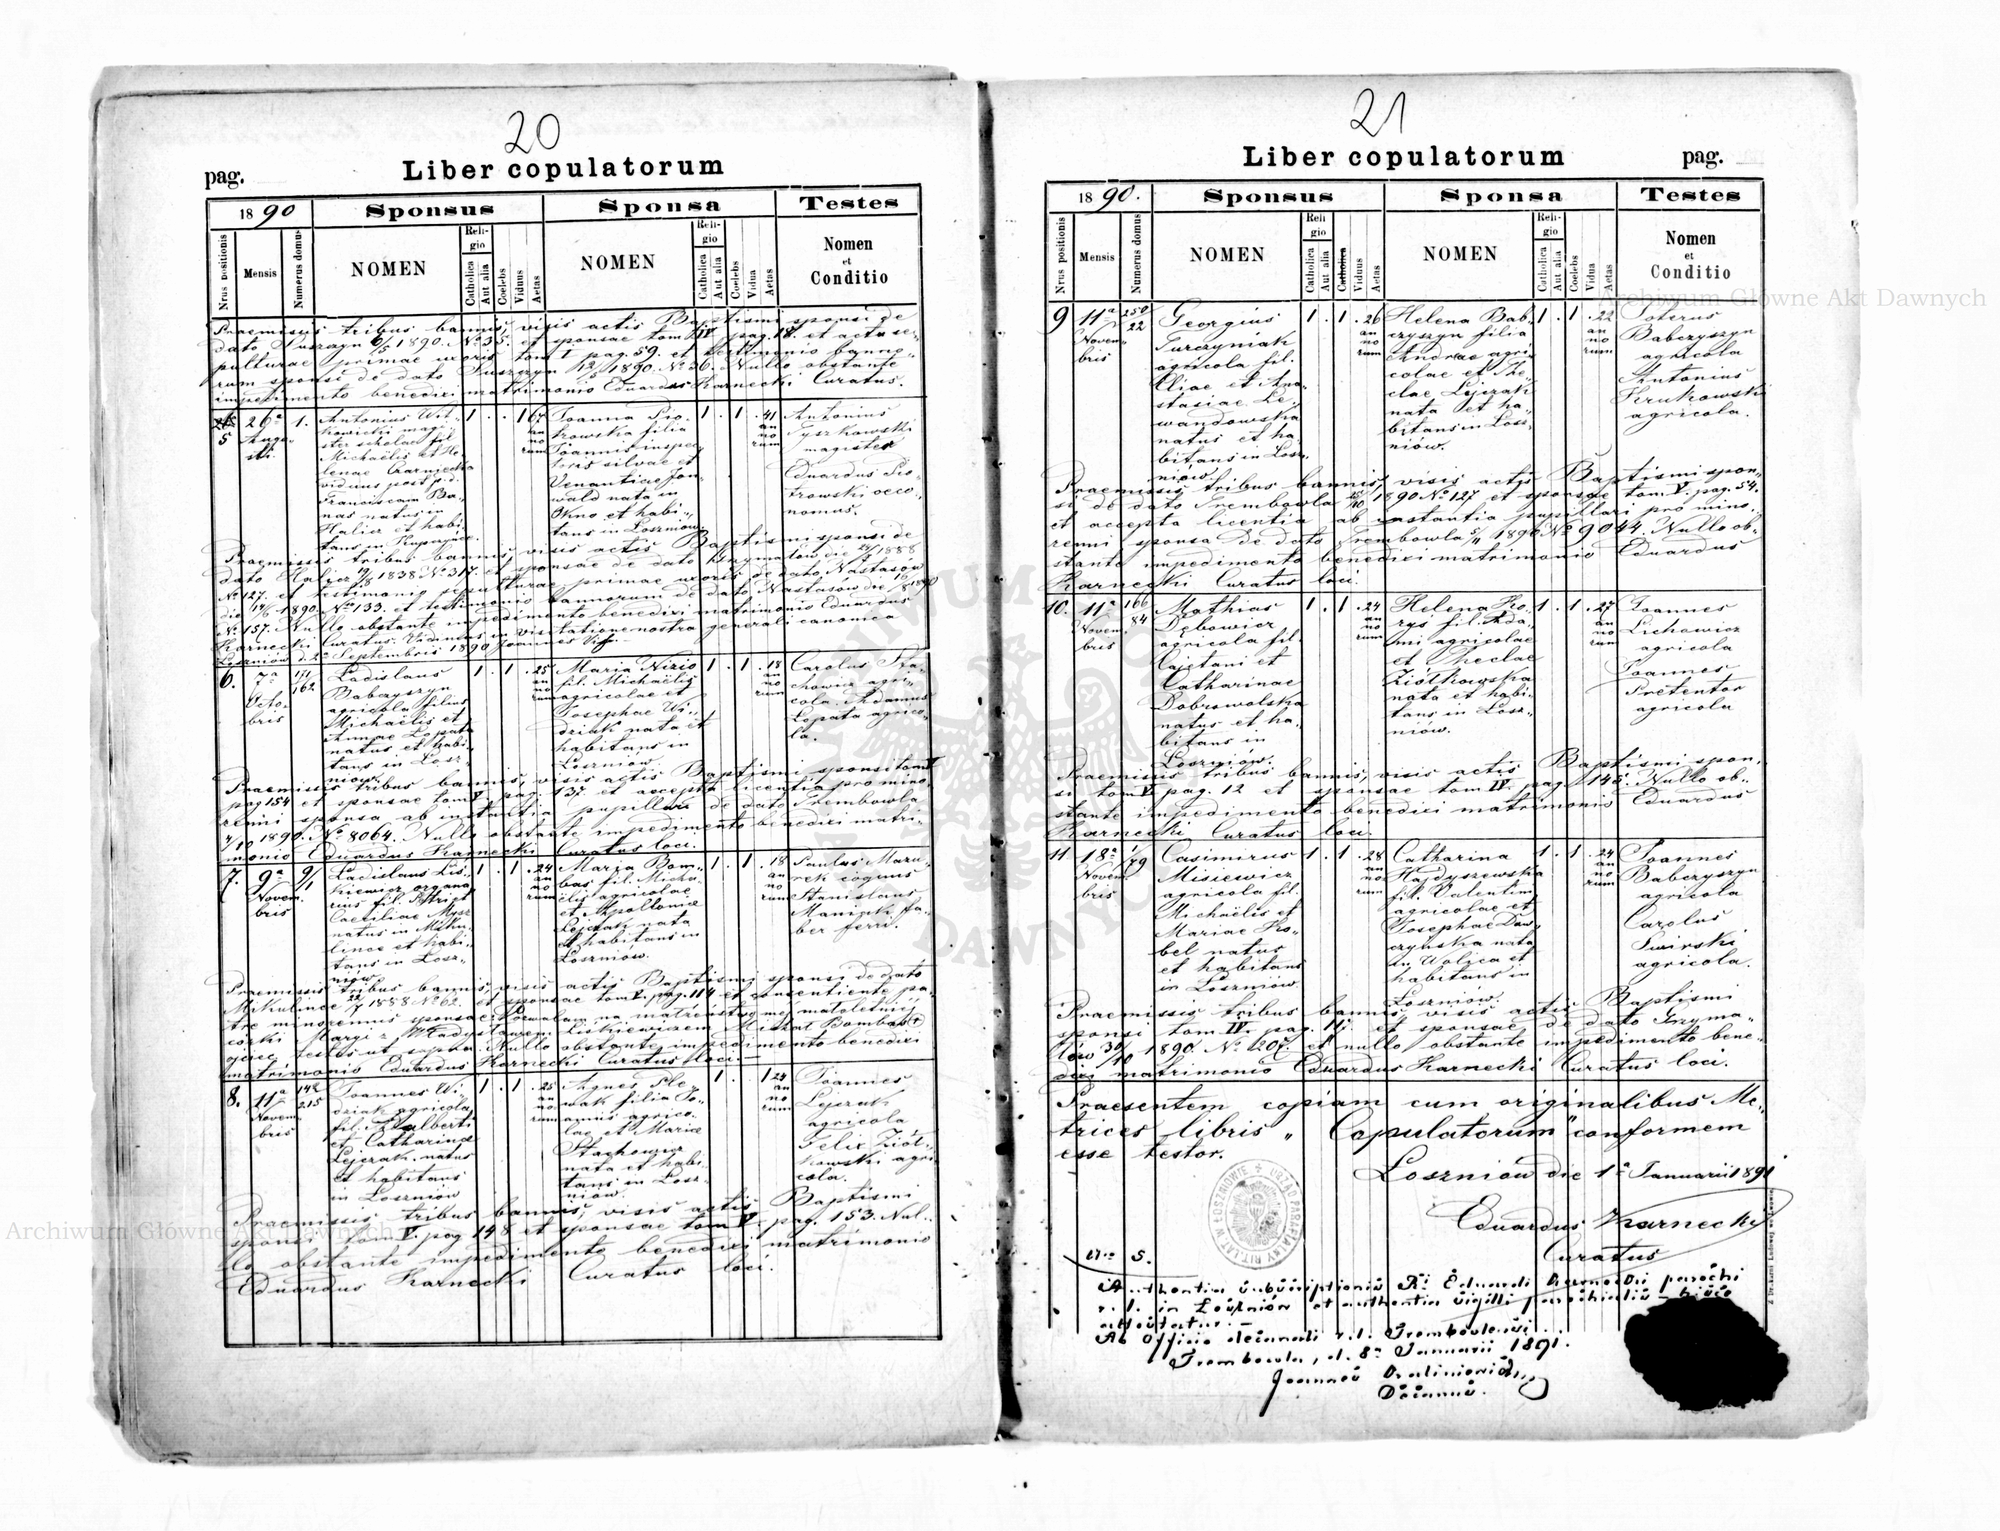 20
Liber copulatorum
pag.
18 90
Sponsus
Sponsa
Testes
Nrus positionis
Mensis
Numerus domus
NOMEN
Religio
Catholica
Aut alia
Coelebs
Viduus
Aetas
NOMEN
Religio
Catholica
Aut alia
Coelebs
Vidua
Aetas
Nomen
et
Conditio
Praemissis tribus bannis, visis actis Baptismi sponsi de
dato 1890. No 35. et sponsae tom IV pag. 18. et actu se-
pulturae primae uxoris tom I pag. 59. et testimonio banno-
rum sponsi de dato 1890. No 36. Nullo obstante
impedimento benedixi matrimonio Eduardus Karnecki Curatus.
5
26a
Augusti
1.
Antonius
magi-
ster scholae fil.
Michaëlis et He-
lenae Czarniecka
viduus post p.d.
Franciscam Ba-
nas natus in
Halicz et habi-
tans in
1 . . 1 67
an
no
rum
Joanna Pio-
trowska filia
Joannis inspec-
toris silvae et
Venantiae
nata in
Okno et habi-
tans in Loszniów.
1 . 1 . 41
an
no
rum
Antonius
Tyszkowski
magister
Eduardus Pio-
trowski oeco-
nomus.
Praemissis tribus bannis, visis actis Baptismi sponsi de
dato Halicz 1838 No 317. et sponsae de dato Krzymałow die 1888
No 127. et testimonio sepulturae primae uxoris de dato Nastasów
die 1890. No 133. et testimonio bannorum de dato Nastasów die 1890
No 157. Nullo obstante impedimento benedixi matrimonio Eduardus
Karnecki Curatus. Vidimus in visitatione nostra generali canonica
Loszniów d. 2a Septembris 1890 Joannes
6.
7a
Octo-
bris
171
162
Ladislaus
Babczyszyn
agricola filius
Michaëlis et
Annae Łopata
natus et habi-
tans in Losz-
niów.
1 . 1 . 25
an
no
rum
Maria Nizio
fil. Michaëlis
agricolae et
Josephae Wi-
dziak nata et
habitans in
Loszniów.
1 . 1 . 18
an
no
rum
Carolus Sta-
chowicz agri-
cola. Adamus
Łopata agrico-
la.
Praemissis tribus bannis, visis actis Baptismi sponsi tom V
pag 154 et sponsae tom V pag. 137. et accepta licentia pro mino-
renni sponsa ab instantia pupillari de dato Trembowla
7/10 1890. No 8064. Nullo obstante impedimento benedixi matri-
monio Eduardus Karnecki Curatus loci.
7.
9a
Novem-
bris
9/1
Ladislaus Lis-
kiewicz organa-
rius fil. et
Caeciliae
natus in Miku-
lince et habi-
tans in Losz-
niów.
1 . 1 . 24
an
no
rum
Maria Bom-
bas fil. Micha-
ëlis agricolae
et Apolloniae
Lejczak nata
et habitans in
Loszniów.
1 . 1 . 18
an
no
rum
Paulus Mazu-
rek coquus
Stanislaus
Maniak fa-
ber ferri.
Praemissis tribus bannis, visis actis Baptismi sponsi de dato
Mikulince 1888 No 62. et sponsae tom V. pag. 114 et consentiente pa-
tre minorennis sponsae: Pozwalam na małżeństwo mej małoletniej
córki Maryi z Władysławem Liśkiewiczem Michał Bombas
ojciec testes ut supra. Nullo obstante impedimento benedixi
matrimonio Eduardus Karnecki Curatus loci.
8.
11a
Novem-
bris
142
215
Joannes Wi-
dziak agricola
fil. Adalberti
et Catharinae
Lejczak. natus
et habitans
in Loszniów
1 . 1 . 25
an
no
rum
Agnes Ple-
wak filia Jo-
annis agrico-
lae et Mariae
Stachowicz
nata et habi-
tans in Losz-
niów.
1 . . 1 24
an
no
rum
Joannes
Lejczak
agricola
Felix Ziół-
kowski agri-
cola.
Praemissis tribus bannis, visis actis Baptismi
sponsi tom V. pag 148 et sponsae tom V. pag. 153. Nul-
lo obstante impedimento benedixi matrimonio
Eduardus Karnecki Curatus loci.
21
Liber copulatorum
pag.
18 90.
Sponsus
Sponsa
Testes
Nrus positionis
Mensis
Numerus domus
NOMEN
Religio
Catholica
Aut alia
Catholica
Viduus
Aetas
NOMEN
Religio
Catholica
Aut alia
Coelebs
Vidua
Aetas
Nomen
et
Conditio
9
11a
Novem-
bris
250
22
Georgius
Turczyniak
agricola fil.
Eliae et Ana-
stasiae Le-
wandowska
natus et ha-
bitans in Losz-
niów.
1 . 1 . 26
an
no
rum
Helena Bab-
czyszyn filia
Andreae agri-
colae et The-
clae Lejczak
nata et ha-
bitans in Losz-
niów.
1 . 1 . 22
an
no
rum
Petrus
Babczyszyn
agricola
Antonius
Krukowski
agricola.
Praemissis tribus bannis, visis actis Baptismi spon-
si de dato Trembowla 25/10 1890 No 127 et sponsae tom. V. pag. 54.
et accepta licentia ab instantia pupillari pro mino-
renni sponsa de dato Trembowla 5/11 1890 No 9044. Nullo ob-
stante impedimento benedixi matrimonio Eduardus
Karnecki Curatus loci.
10.
11a
Novem-
bris
166
84
Mathias
Dębowicz
agricola fil.
Cajetani et
Catharinae
Dobrowolska
natus et ha-
bitans in
Loszniów.
1 . 1 . 24
an
no
rum
Helena Ko-
rys fil. Ada-
mi agricolae
et Theclae
Ziółkowska
nata et habi-
tans in Losz-
niów.
1 . 1 . 27
an
no
rum
Joannes
Lichowicz
agricola
Joannes
Pretentor
agricola
Praemissis tribus bannis, visis actis Baptismi spon-
si tom V. pag. 12 et sponsae tom IV. pag. 145. Nullo ob-
stante impedimento benedixi matrimonio Eduardus
Karnecki Curatus loci.
11
18a
Novem-
bris
1/79
Casimirus
Misiewicz
agricola fil.
Michaëlis et
Mariae Ko-
bel natus
et habitans
in Loszniów.
1 . 1 . 28
an
no
rum
Catharina
Hajdyszewska
fil. Valentini
agricolae et
Josephae Daw-
czynska nata
in Wolica et
habitans in
Loszniów.
1 . 1 . 24
an
no
rum
Joannes
Babczyszyn
agricola
Carolus
Swirski
agricola.
Praemissis tribus bannis, visis actis Baptismi
sponsi tom IV. pag. 117. et sponsae de dato Grzyma-
łów 30/10 1890. No 207. et nullo obstante impedimento bene-
dixi matrimonio Eduardus Karnecki Curatus loci.
Praesentem copiam cum originalibus Me-
trices libris „Copulatorum" conformem
esse testor.
Loszniów die 1a Januarii 1891
Eduardus Karnecki
Curatus
URZĄD PARAFIALNY RIT. LAT. W ŁOSZNIOWIE
Nro 5.
Authentia subscriptionis R. Eduardi Karnecki parochi
r. l. in Loszniów et authentia sigilli parochialis hisce
attestatur.
Ab Officio decanali r. l. Trembovlensi.
Trembovla, d. 8a Januarii 1891.
Joannes
Decanus.
Archiwum Główne Akt Dawnych
Archiwum Główne Akt Dawnych